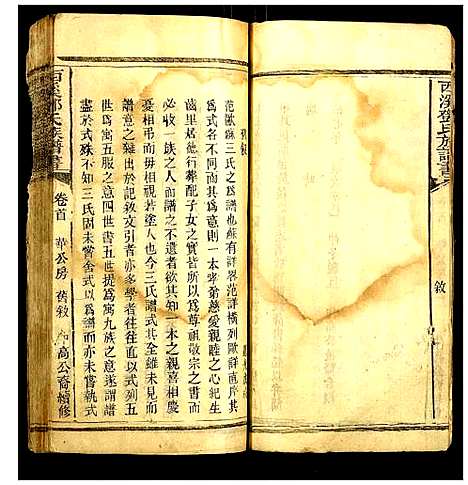 西溪鄧氏族譜書
敘
范歐蘇三氏之譜也蘇有詳畧范詳橫列歐詳直序其
為式各不同而其為意則一本孝弟慈愛親睦之心紀生
齒里居婚葬配子女之實皆所以為尊祖敬宗之書而
必收一族之人而譜之不遺者欲其知一本之親喜相慶
憂相弔而毋相視若塗人也今三氏譜式其全雖未見而
譜意之雜出於記敘文引者亦多學者往往直以式列五
世為寓五服之意四世書五世提為寓九族之意遂謂譜
盡於式殊不知三氏固未嘗舍式以為譜而亦未嘗執式
西溪鄧氏族譜書
卷首
華公房
舊敘
高公裔續修